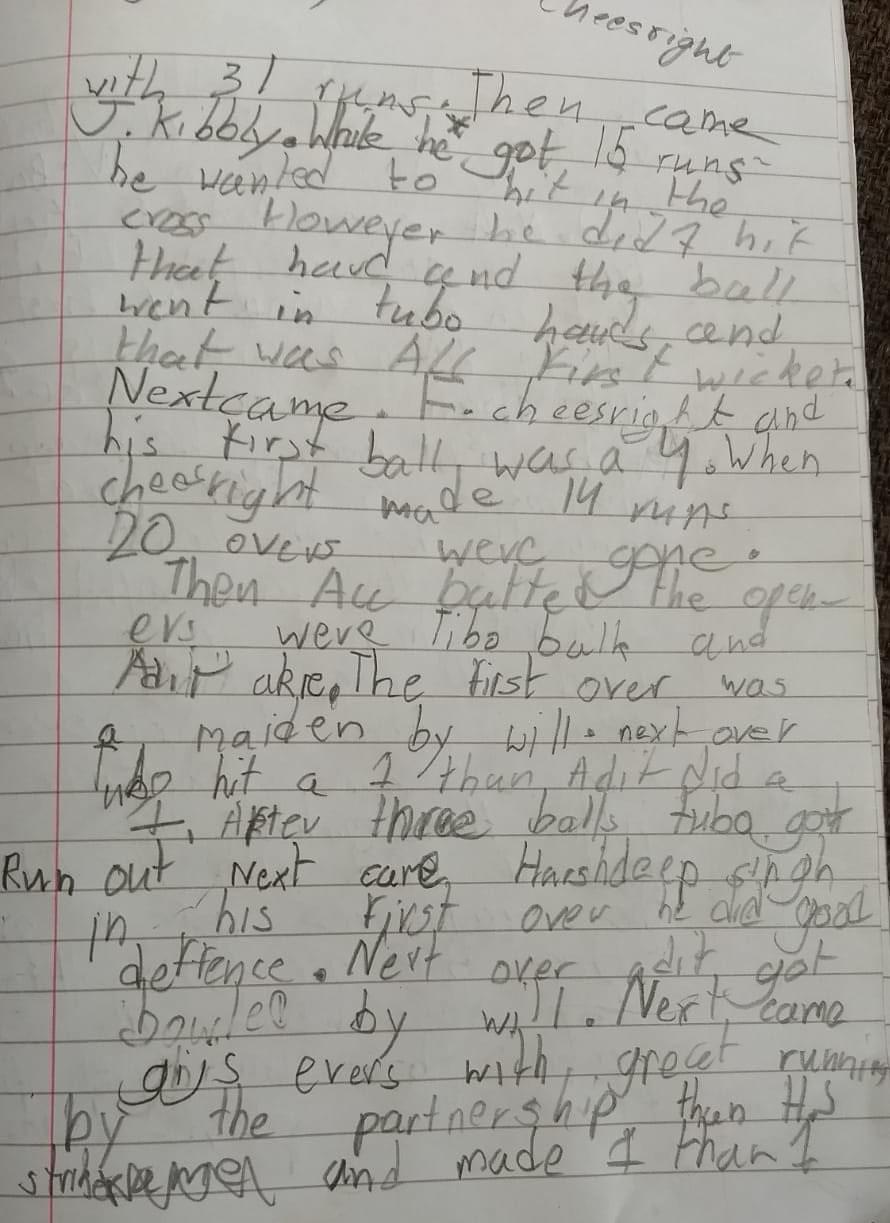 cheesright
with 31 runs. Then came
J. Kibbly. While he* got 15 runs
he wanted to hit in the
cross However he did7 hit
that haud and the ball
went in tubo hauds, and
that was All first wicket.
Next came. F. cheesright and
his first ball was a 4. When
cheesright made 14 runs
20 overs were gone.
Then Acc batted the open-
ers were Tibo balk and
Adit akre. The first over was
a maiden by will. next over
Tubo hit a 1 than Adit did a
1. After three balls tubo got
Run out Next came Harshdeep singh
in his first over he did good
deffence. Next over adit got
bowled by will. Next came
evers with great running
by the partnership then H.S
and made 1 than 1